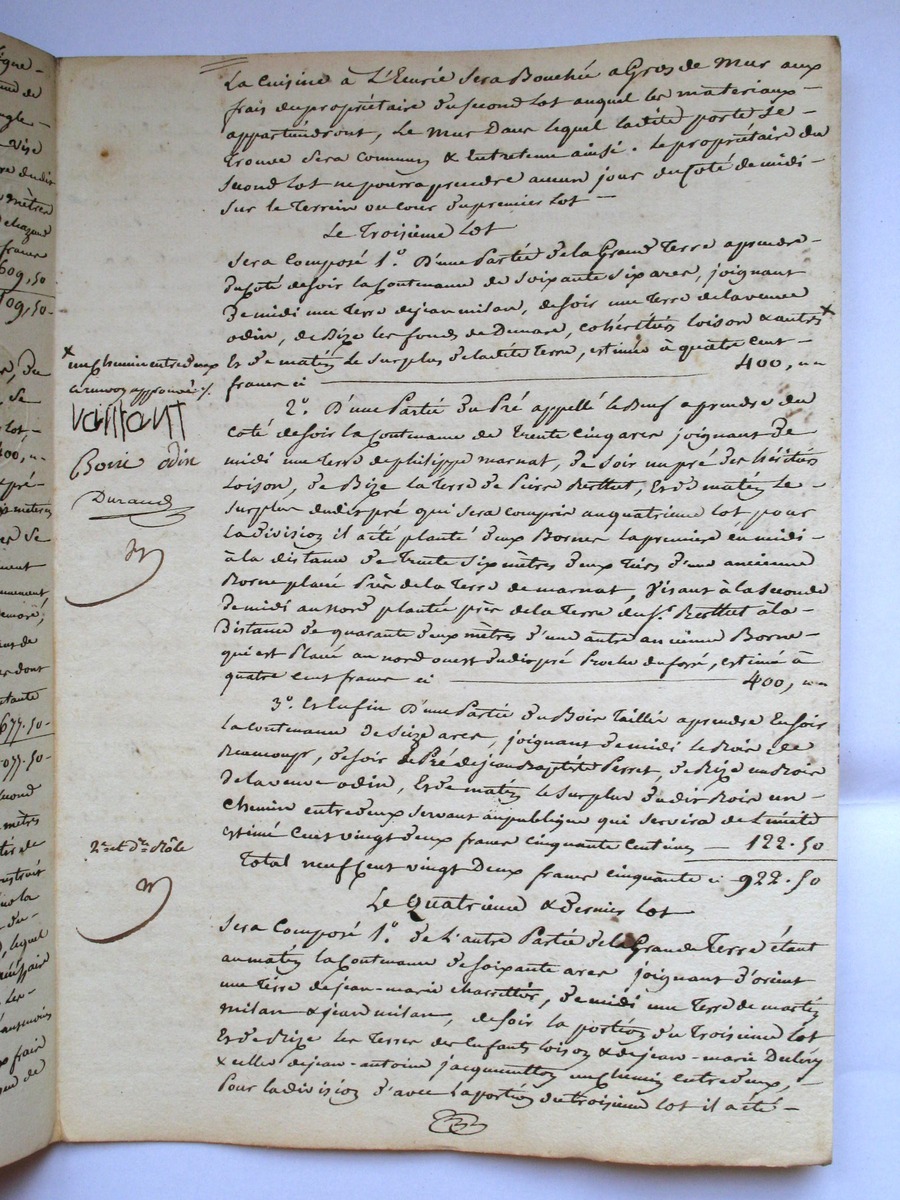 La Cuisine à L'Ecurie Sera Bouchée a Gros de Mur aux
frais du propriétaire du second Lot auquel les materiaux
appartiendront, Le Mur Dans lequel ladite porte se
trouve sera commun & Entretenu ainsi. Le propriétaire du
second Lot ne pourra prendre aucun jour du Coté de midi
sur le Terrein ou cour du premier Lot
Le Troisieme Lot
Sera Composé 1.º D'une Partie de la Grande Terre aprendre
du Coté de soir la Contenance de Soixante Six ares, joignant
de midi une Terre de jean milan, de soir une Terre de la veuve
odin, de Bize les fonds de Demare, cohéritiers Loison & autres x
Et de matin Le Surplus de ladite Terre, estimée à quatre cent
francs ci 400, "
x un Chemin entre deux
ce renvoy approuvé ./.
vaillant
Boire odin
Durand
2.º D'une Partie du Pré appellé le Beuf aprendre du
coté de soir la Contenance de Trente Cinq ares joignant de
midi une Terre de philippe marnat, de Soir un pré des héritiers
Loison, de Bize la Terre de Pierre Berthet, Et de matin Le
Surplus dudit pré qui sera compris au quatrieme Lot pour
la division il a été planté deux Bornes la premiere en midi
à la distance de Trente Six mètres deux Tiers d'une ancienne
Borne placée Près de la Terre de marnat, Visant à la Seconde
de midi au nord plantée près de la Terre du S.r Berthet à la
Distance de quarante deux mètres d'une autre ancienne Borne
qui est Placée au nord ouest dudit pré Proche du fossé, estimée à
quatre cent francs ci 400, "
3.º Et Enfin D'une Partie du Bois Taillis aprendre En soir
la contenance de Seize ares, joignant de midi le Bois de
de soir le Pré de jean Baptiste Perret, de Bize un Bois
de la veuve odin, Et de matin le Surplus dudit Bois un
chemin entre deux servant au publique qui servira de Limite
estimé Cent vingt deux francs Cinquante Centimes 122.50
Total neuf Cent vingt Deux francs cinquante ci 922.50
2.e et d.er Rôle
Le Quatrieme & dernier Lot
Sera Composé 1.º de L'autre Partie de la Grande Terre étant
au matin la Contenance de soixante ares joignant d'orient
une Terre de jean-marie, de midi une Terre de martin
milan & jean milan, de soir la portion du Troisieme Lot
Et de Bize les Terres des Enfants Loison & de jean-marie
& celle de jean-antoine jacquemetton un Chemin entre deux,
Pour la division d'avec la portion du troisieme Lot il a été